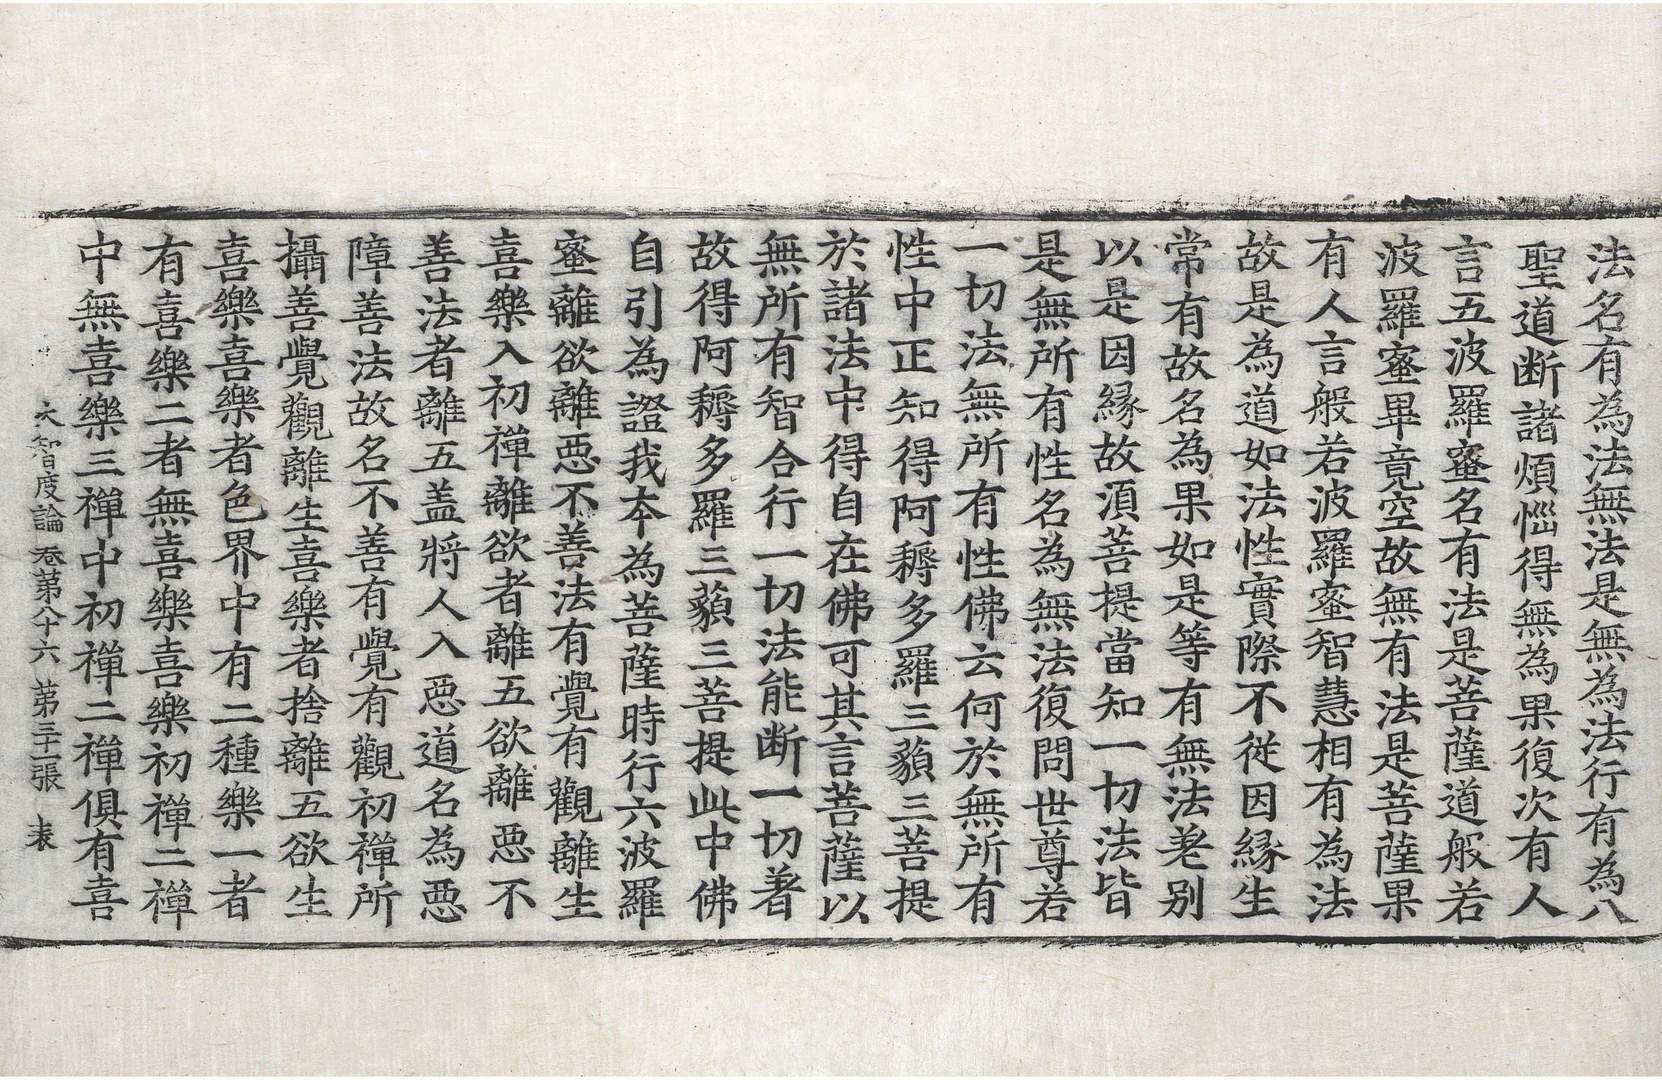 法名有為法無法是無為法行有為八
聖道断諸煩惱得無為果復次有人
言五波羅蜜名有法是菩薩道般若
波羅蜜畢竟空故無有法是菩薩果
有人言般若波羅蜜智慧相有為法
故是為道如法性實際不從因緣生
常有故名為果如是等有無法差別
以是因緣故湏菩提當知一切法皆
是無所有性名為無法復問世尊若
一切法無所有性佛云何於無所有
性中正知得阿耨多羅三藐三菩提
於諸法中得自在佛可其言菩薩以
無所有智合行一切法能断一切著
故得阿耨多羅三藐三菩提此中佛
自引為證我夲為菩薩時行六波羅
蜜離欲離惡不善法有覺有觀離生
喜樂入初禪離欲者離五欲離惡不
善法者離五盖將人入惡道名為惡
障善法故名不善有覺有觀初禪所
攝善覺觀離生喜樂者捨離五欲生
喜樂喜樂者色界中有二種樂一者
有喜樂二者無喜樂喜樂初禪二禪
中無喜樂三禪中初禪二禪俱有喜
大智度論 卷第八十六 第三十一張 表